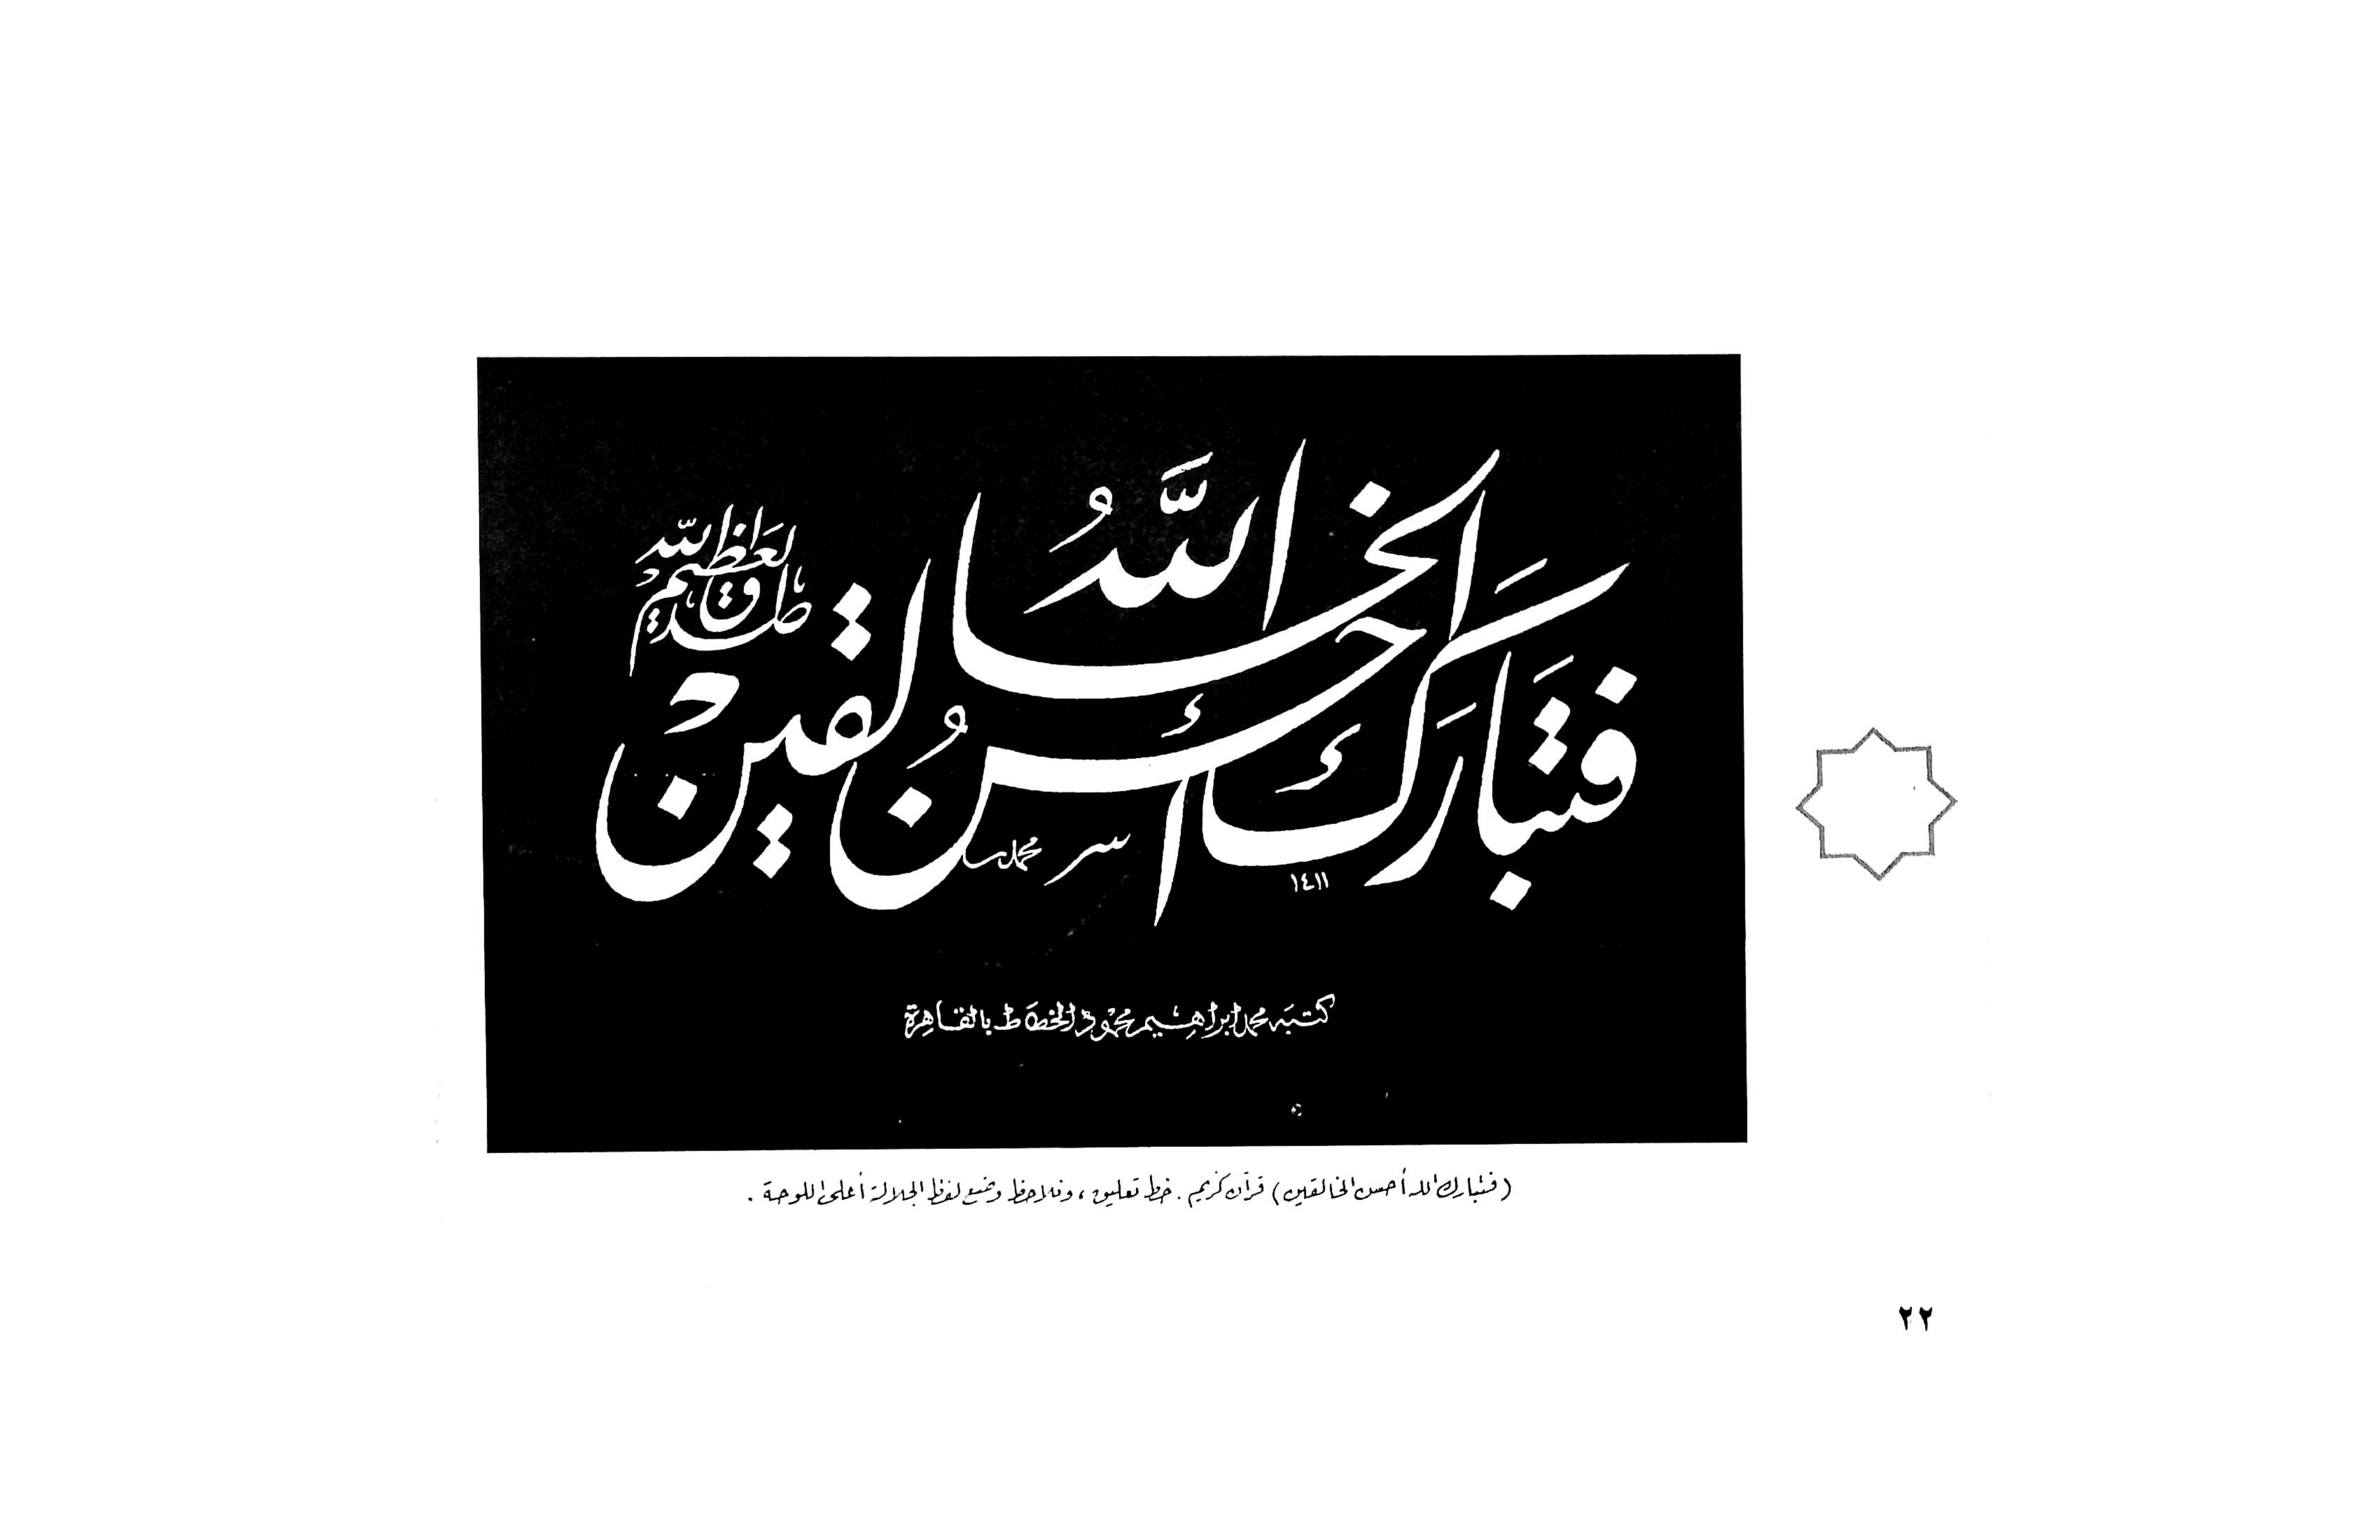 فَتَبَارَكَ اللَّهُ أَحْسَنُ الْخَالِقِينَ
صدق الله العظيم
محمد
١٤١١
كتبه محمد ابراهيم محمود الخطاط بالقاهرة
(فتبارك الله أحسن الخالقين) قرآن كريم. خط تعليق، ونلاحظ وضع لفظ الجلالة أعلى اللوحة.
٢٢